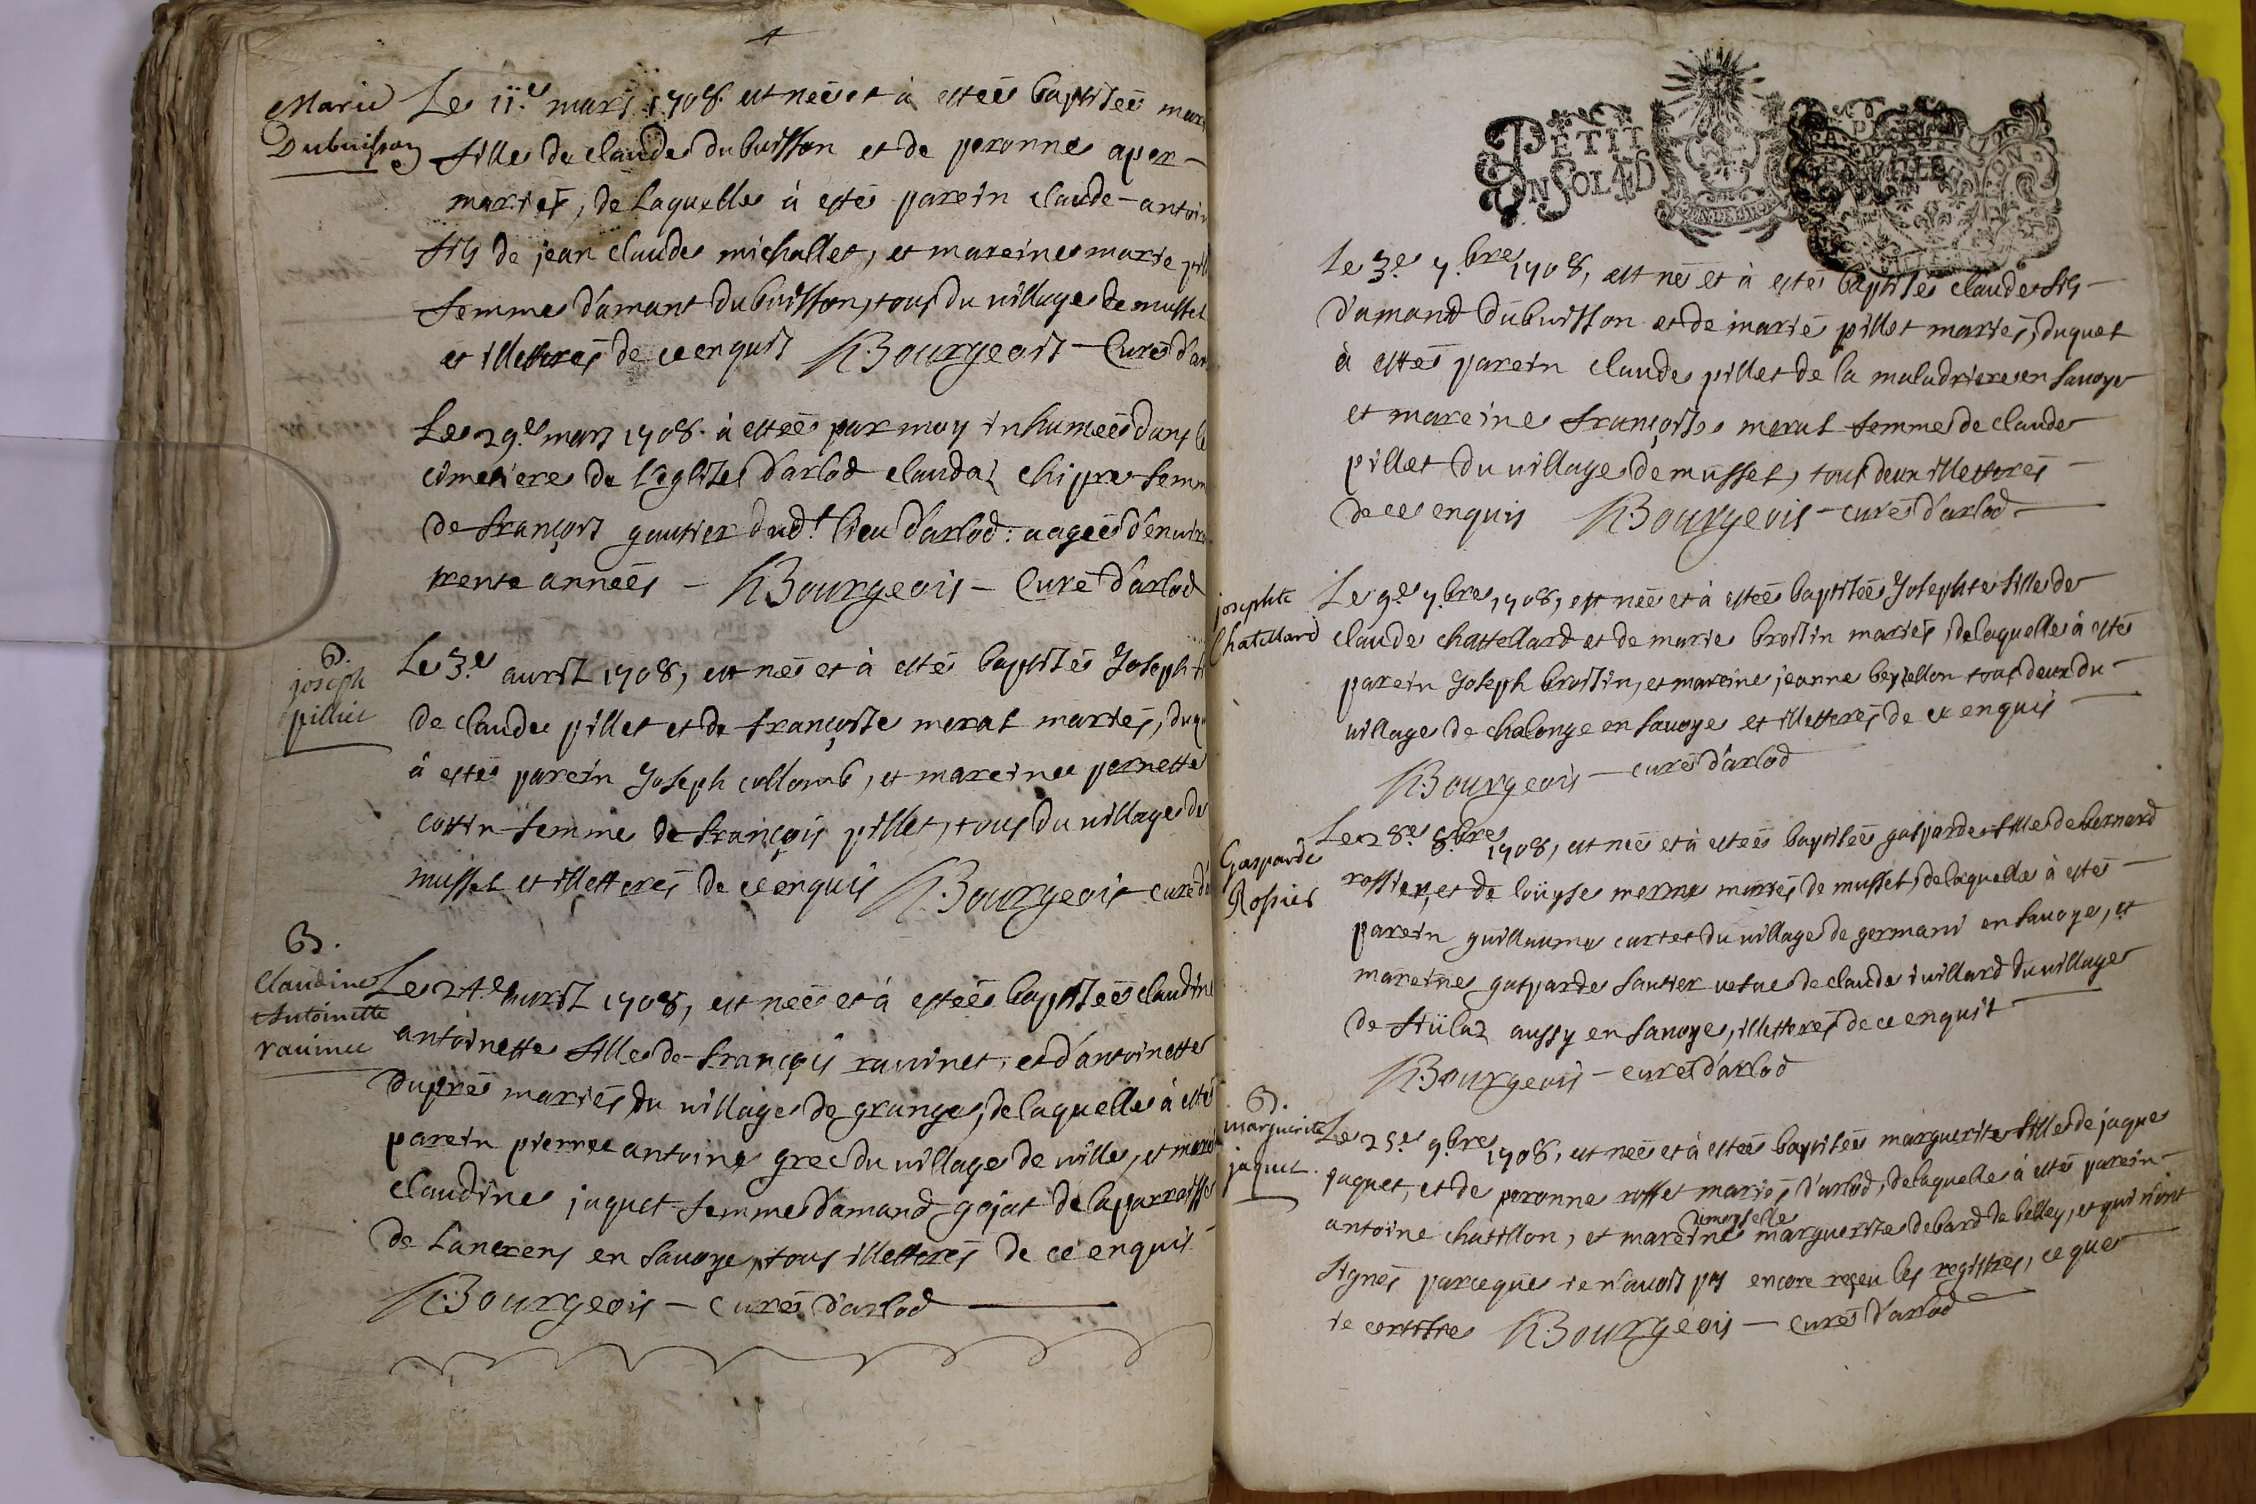 Marie
Dubuisson
Le 11.e mars 1708. est neé et à esteé baptiseé mar
fille de claude du buisson et de peronne aper-
mariés, de laquelle à esté parein claude-antoin
fils de jean claude michallet, et mareine marie pill
femme d'amant du buisson, tous du village de mussel
et illetterés de ce enquis RBourgeois - Curé d'ar
Le 29.e mars 1708. à esteé par moy inhumeé dans le
cimetiere de l'eglise d'arlod claudaz chipre femm
de françois gautier dud.t lieu d'arlod: aageé d'enviro
trente anneés - RBourgeois - Curé d'arlod
B.
joseph
pillet
Le 3.e avril 1708, est neé et à esté baptisé Joseph fi
de claude pillet et de françoise merat mariés, duqu
à esté parein Joseph collomb, et mareine pernette
cottin femme de françois pillet, tous du village de
mussel et illetterés de ce enquis RBourgeois curé d'a
B.
Claudine
Antoinette
ravinet
Le 24.e avril 1708, est neé et à esteé baptiseé claudine
antoinette fille de françois ravinet, et d'antoinette
dupré mariés du village de grange, de laquelle à esté
parein pierre antoine grec du village de ville, et marei
claudine jaquet femme d'amand gojat de la parroisse
de Lancrens en savoye, tous illetterés de ce enquis
RBourgeois - curé d'arlod
PETIT
EN SOL 4 D
Le 3.e 7.bre 1708, est né et à esté baptisé claude fils
d'amand du buisson et de marie pillet mariés, duquel
à esté parein claude pillet de la maladriere en savoye
et mareine françoise merat femme de claude
pillet du village de mussel, tous deux illetterés
de ce enquis RBourgeois - curé d'arlod
josephte
Chatellard
Le 9.e 7.bre 1708, est neé et à esteé baptiseé Josephte fille de
claude chattellard et de marie broisin mariés, de laquelle à esté
parein Joseph broisin, et mareine jeanne beytellon tous deux du
village de chalonge en savoye et illetterés de ce enquis
RBourgeois - curé d'arlod
Gasparde
Rossier
Le 28.e 8.bre 1708, est neé et à esteé baptiseé gasparde fille de bernard
rossier, et de loüyse merme mariés de mussel, de laquelle à esté
parein guillaume curtet du village de germani en savoye, et
mareine gasparde sautier vefve de claude vuillard du village
de fiülaz aussy en savoye, illetterés de ce enquis
RBourgeois - curé d'arlod
B.
marguerite
jaquet.
Le 25.e 9.bre 1708, est neé et à esteé baptiseé marguerite fille de jaque
jaquet, et de peronne rosset mariés d'arlod, de laquelle à esté parein
antoine chatillon, et mareine dimoyselle marguerite debard de belley, et qui n'ont
signés parceque ie n'avois pas encore reçeu les registres, ce que
ie certifie RBourgeois - curé d'arlod